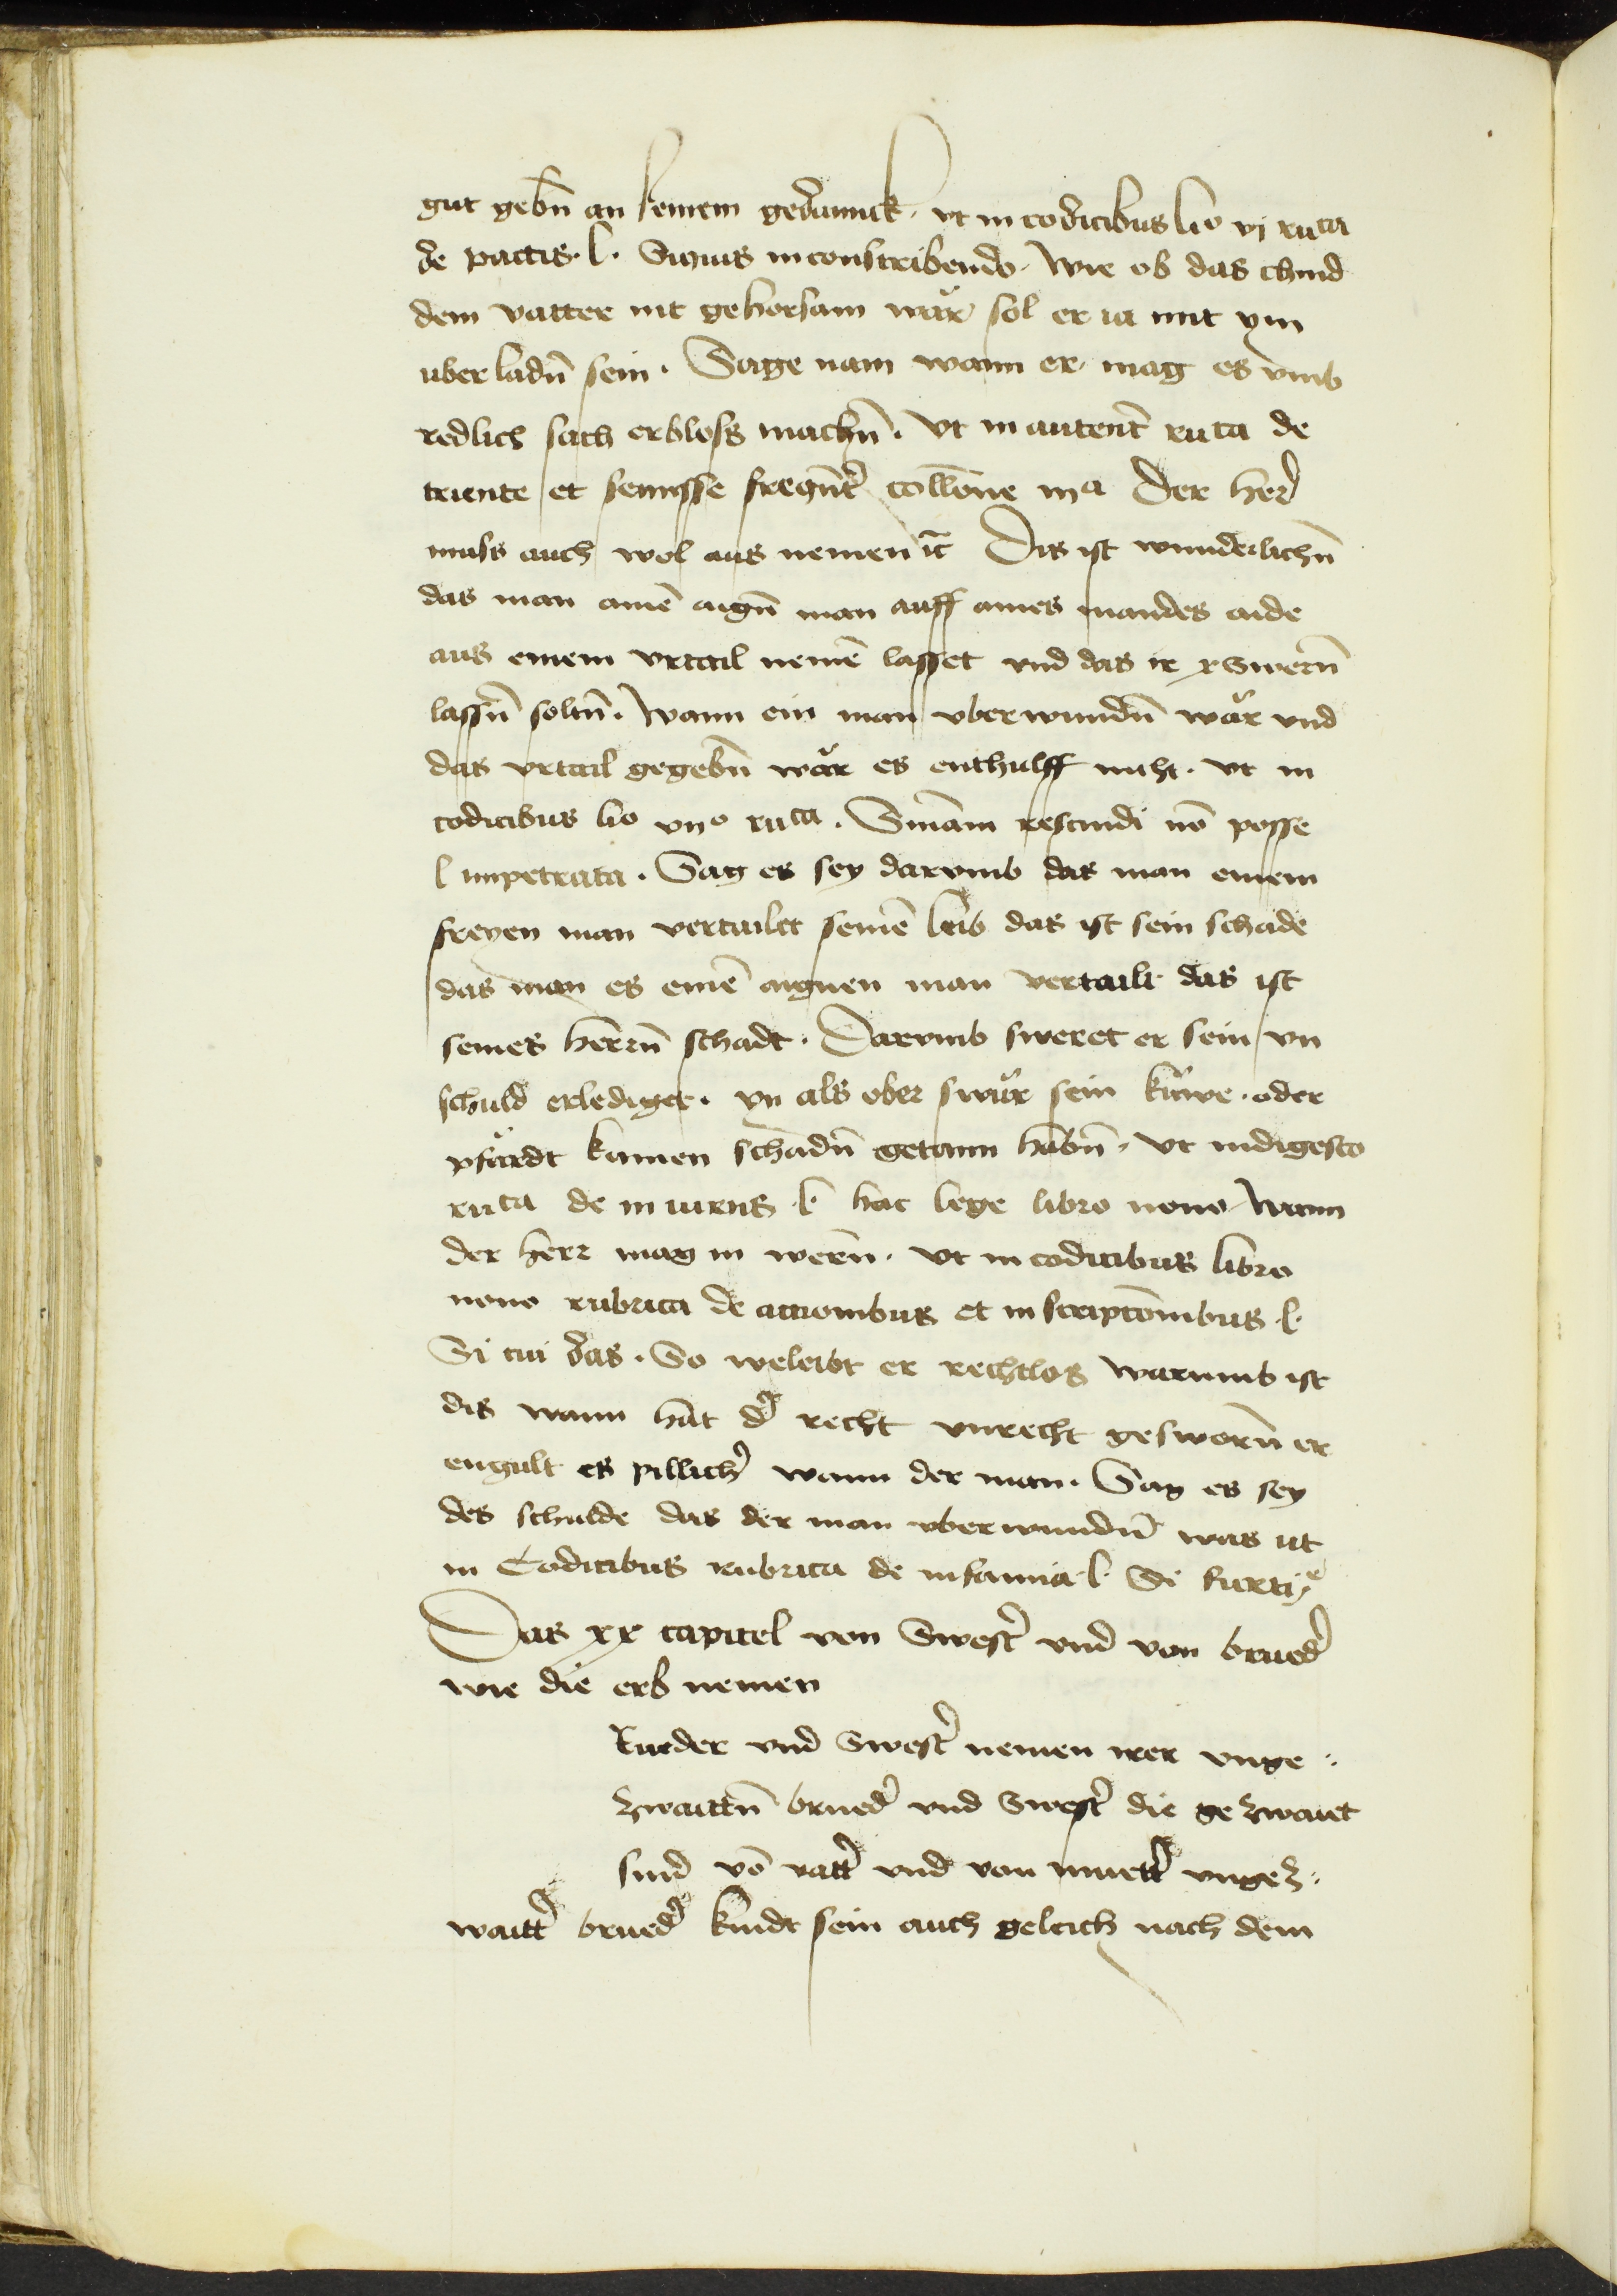 gut gebn̄ an seinem gedannck. vt in codicibus lio vj rīca
de pactis. l. Siquis inconscribendo. Wie ob das chind
dem vatter nit gehorsam wär sol er ia mit ym
uber ladn̄ sein. Sage nain wann er mag es vmb
redlich sach erbloss machn̄. Vt in autent̄ ruca de
triente et semisse collōne iija Der her
muss auch wol aus nemen Dis ist wunderlichn̄
das man ainē aign̄ man auff aines mandes aide
aus einem vrtail nemē lasset vnd das ir swern̄
lassn̄ soltn̄. Wann ein man vberwundn̄ wär vnd
das vrtail gegebn̄ wär es enthulff nicht. vt in
codicibus lio vijo ruca. Sniam rescindi nō posse
l impetrata. Sag es sey darvmb das man einem
freyen man vertailet seinē leib das ist sein schade
das man es einē aignen man vertailt das ist
seines herrn̄ schadt. Darvmb sweret er sein vn
schuld erlediget. vn als ober swür sein küwe. oder
pfärdt kainen schadn̄ getann habn̄. Vt indigesto
ruca de iniuriis l hac lege libro nono. Wann
der herr mag in wern̄. Vt in codicibus libro
nono rubrica de accionibus et inscriptōnibus. l.
Si cui das. So weleibt er rechtlos warumb ist
dis wann hat d' recht vnrecht gesworn̄ er
engult es pillich' wann der man. Sag es sey
des schulde das der man vberwundn̄ was ut
in Codicibus rubrica de infamia. l. Si furti
Das xx capitel von Swest' vnd von brued'
wie die erb nemen
Rueder vnd Swest' nemen irer vnge
zwaittn̄ brued' vnd Swest' die ge zwaiet
sind vō vatt' vnd von muett' vngez
waitt' brued' kindt sein auch geleich nach dem